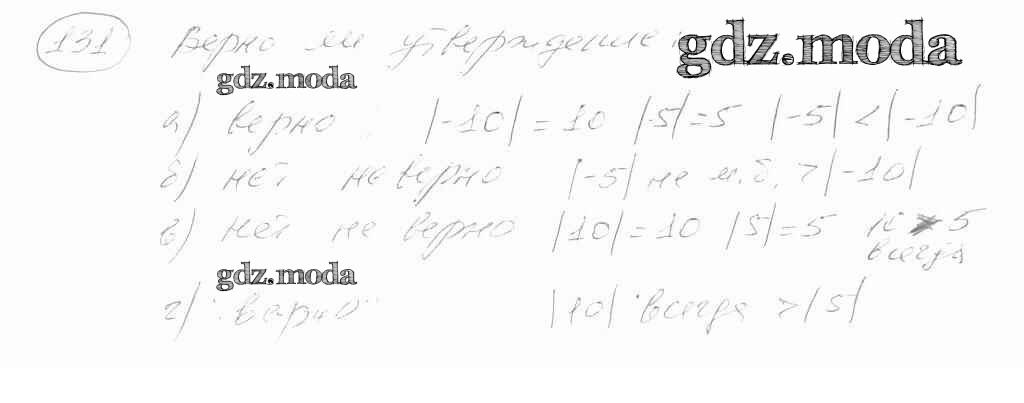 131 Верно ли утверждение gdz.moda
gdz.moda
а) верно |-10| = 10 |-5|=5 |-5| < |-10|
б) нет не верно |-5| не м.б. > |-10|
в) нет не верно |10| = 10 |5| = 5 > 5
всегда
gdz.moda
г) верно |10| всегда > |5|